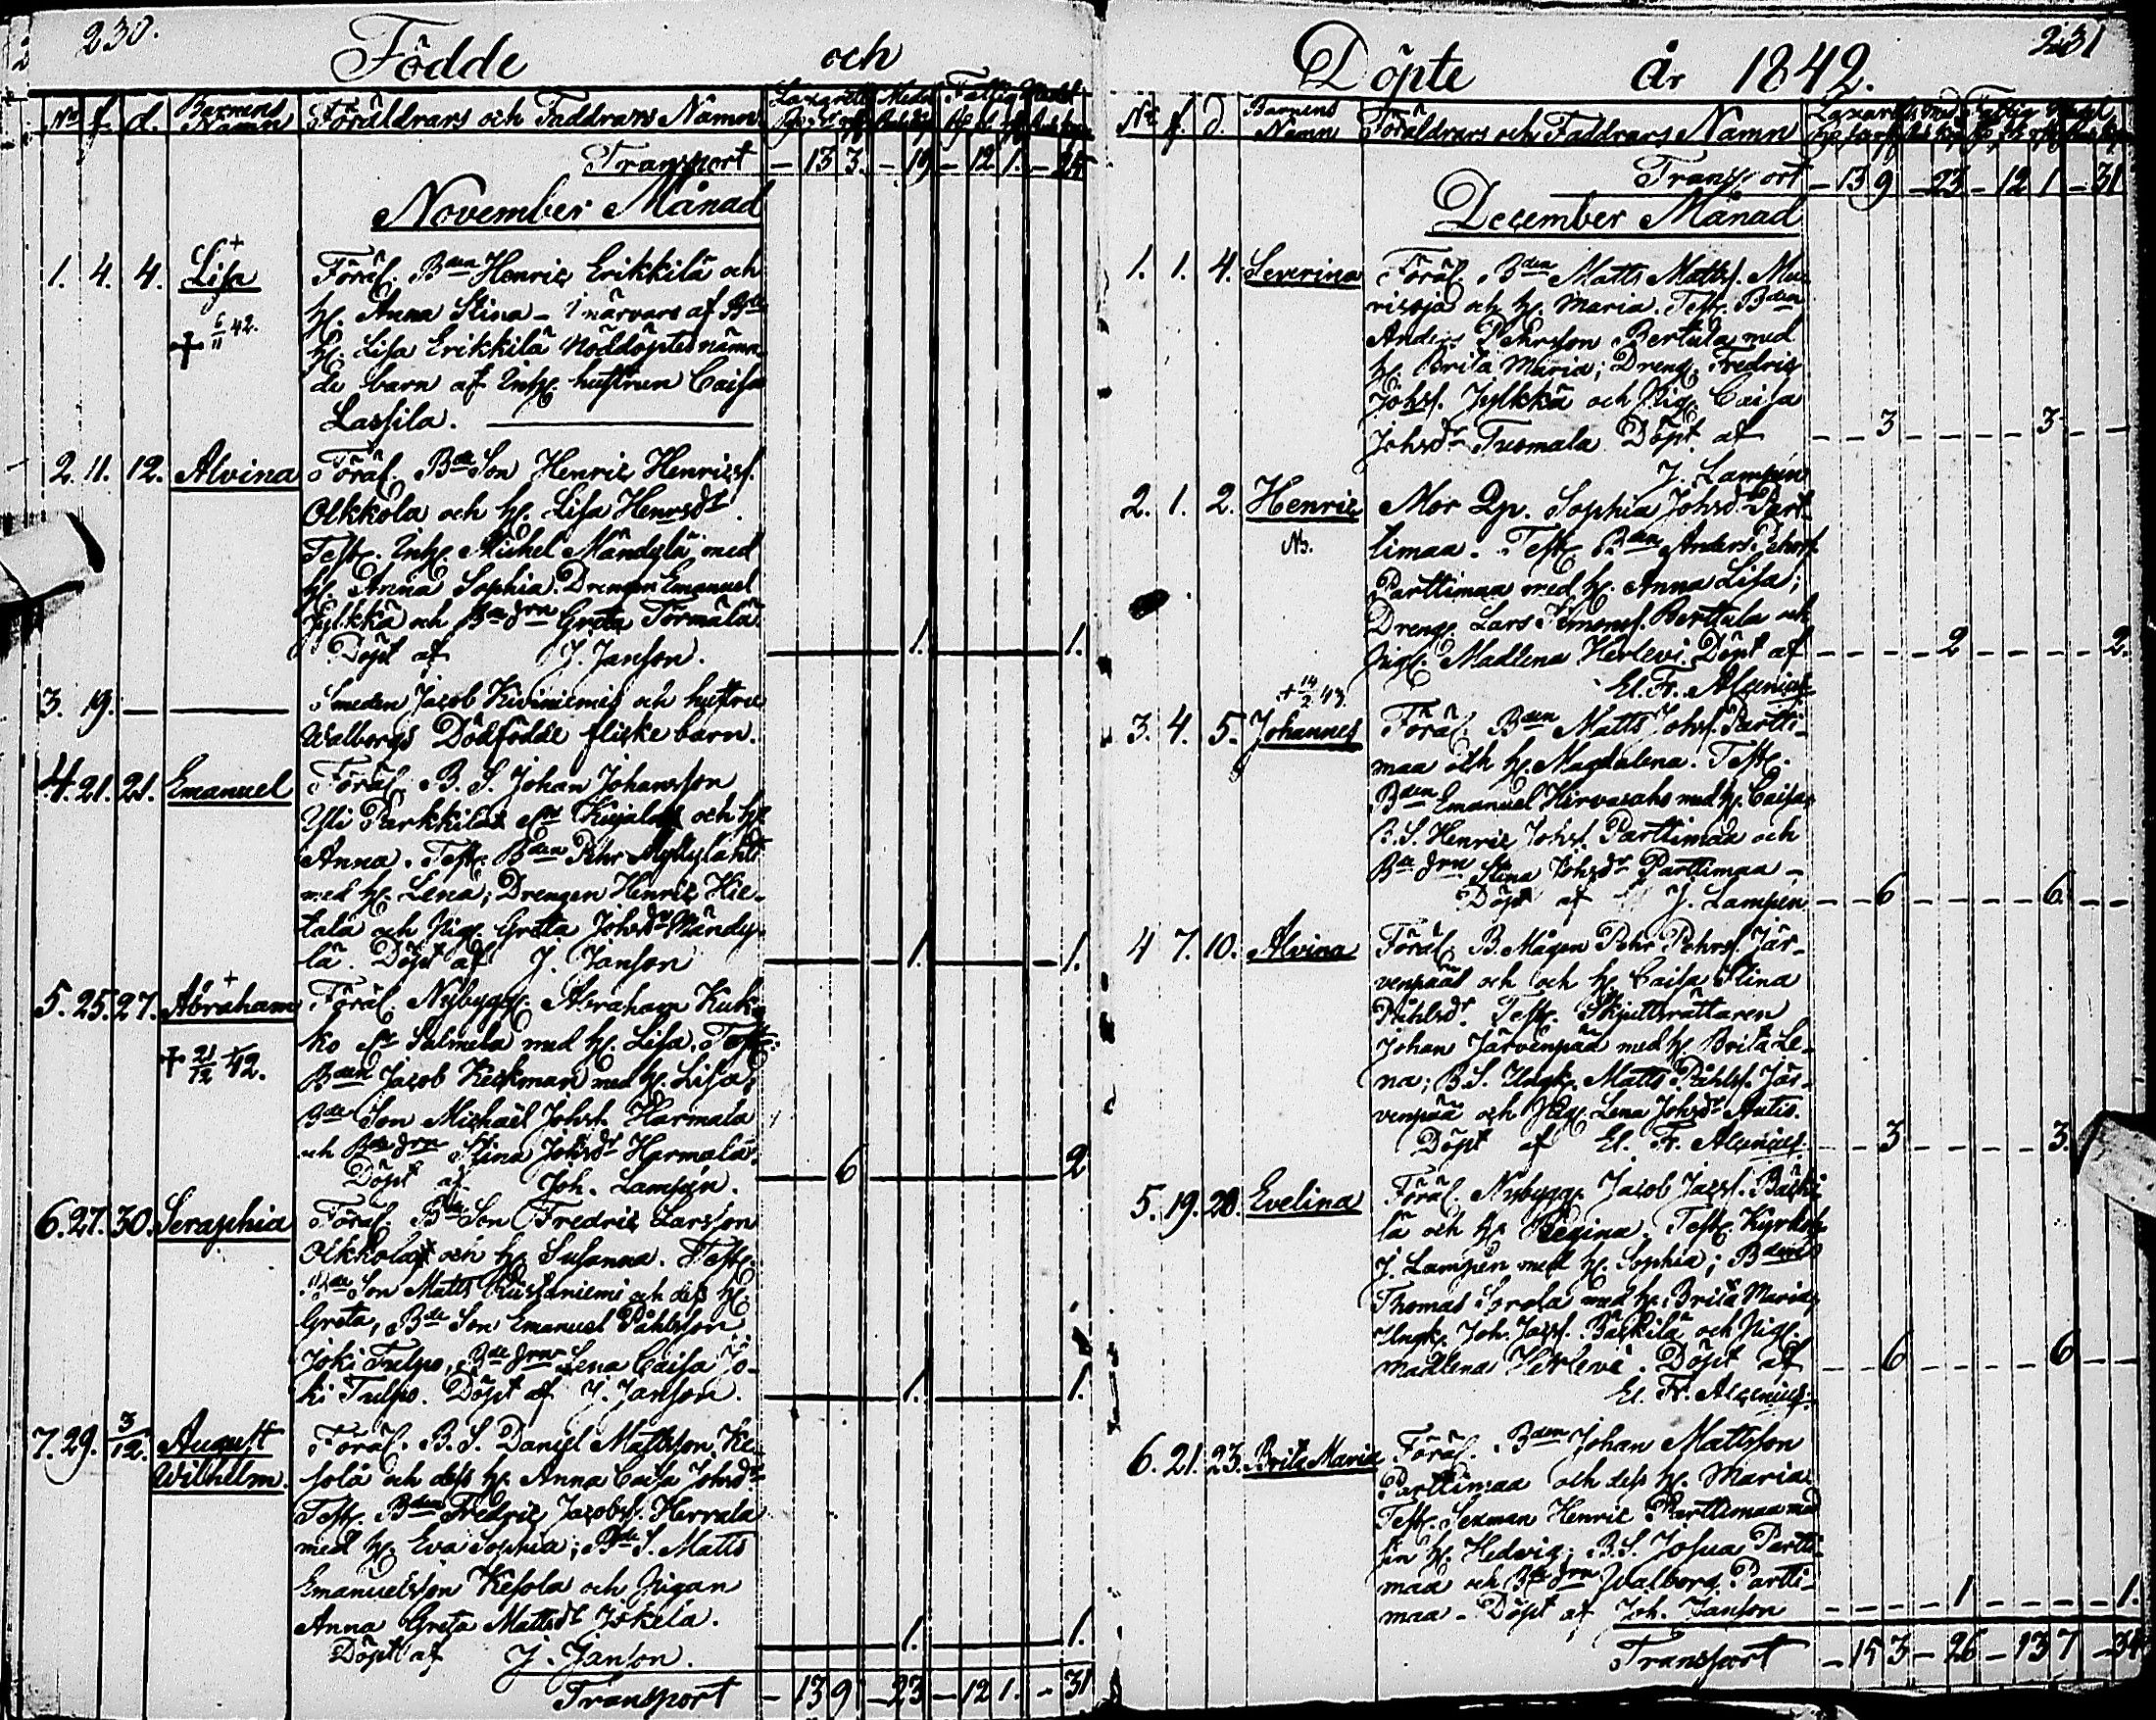 230.
Födde och
No f. d. Barnens Namn Föräldrars och Faddrars Namn
Transport - 13 3. - 19 - 12 1. -
November Månad
1. 4. 4. Lisa Föräl. Bden Henric Erikkilä och
h. Anna Stina - i närvaro af Bde
+ 6/11 42. h. Lisa Erikkilä nöddöptes nämn
de barn af Inh. hustrun Caisa
Lassila.
2. 11. 12. Alvina Föräl. Bde Son Henric Henricss.
Olkkola och h. Lisa Henrsdr
Test. Inh. Michel Mändylä med
h. Anna Sophia. Drengen Emanuel
Jylkkä och Bde drn Greta Törmälä
Döpt af J. Janson. 1. 1.
3. 19. - Smeden Jacob Kiviniemis och hustru
Walborgs Dödfödde flicke barn.
4. 21. 21. Emanuel Föräl. B. S. Johan Johansson
Yli Parkkila och h.
Anna. Test. Bden Pehr Myllylaht
med h. Lena; Drengen Henric Hie-
tala och Pig. Gretta Johsdr Mändy-
lä. Döpt af J. Janson 1. 1.
5. 25. 27. Abraham Föräl. Nybygg. Abraham Kuk-
ko Salmela med h. Lisa. Test.
+ 21/12 42. Bden Jacob Keckman med h. Lisa;
Bde Son Michaël Johss. Harmala
och Bde drn Stina Johsdr Harmala.
Döpt af Joh. Lampén. 6 2
6. 27. 30. Seraphia Föräl. Bde Son Fredric Larsson
Olkkola och h. Susanna. Test.
Bde Son Matts Kustaniemi och dess h.
Greta, Bde Son Emanuel Påhlsson
Joki Tulpo, Bde drn Lena Caisa Jo-
ki Tulpo. Döpt af J. Janson. 1. 1.
7. 29. 3/12. August Föräl. B. S. Daniel Mattsson Ke-
Wilhelm. sola och dess h. Anna Caisa Johsdr
Test. Bden Fredric Jacobss. Herrala
med h. Eva Sophia; Bde S. Matts
Emanuelsson Kesola och Pigan
Anna Greta Mattsdr Jokela.
Döpt af J. Janson. 1. 1.
Transport - 13 9 - 23 - 12 1. - 31
Döpte år 1842. 231
No f. d. Barnens Namn Föräldrars och Faddrars Namn
Transport - 13 9 - 23 - 12 1 - 31
December Månad
1. 1. 4. Severina Föräl. Bden Matts Mattss. Mu
risoja och h. Maria. Test. Bden
Anders Pehrsson Bertula med
h. Brita Maria; Dreng. Fredric
Johss. Jylkkä och Pig. Caisa
Johsdr Tuomala Döpt af 3 3
J. Lampén
2. 1. 2. Henric Mor Qp. Sophia Johsdr Part-
Nb. timaa. Test. Bden Anders Pehrss.
Parttimaa med h. Anna Lisa;
Dreng. Lars Simonss. Berttula och
Pig. Madlena Herlevi. Döpt af 2 2.
El. Fr. Alcenius
+ 14/2 43.
3. 4. 5. Johannes Föräl. Bden Matts Johss. Partti-
maa och h. Magdalena. Test.
Bden Emanuel Hirvasaho med h. Caisa
B. S. Henric Johss. Parttimaa och
Bde drn Stina Johsdr Parttimaa -
Döpt af J. Lampén 6 6.
4 7. 10. Alvina Föräl. B. Mågen Pehr Pehrss. Jär-
venpää och och h. Caisa Stina
Påhlsdr. Test. Skjuttsrättaren
Johan Järvenpää med h. Brita Le-
na; B. S. Ungk. Matts Påhlss. Jär-
venpää och Pig. Lena Johsdr Autio.
Döpt af El. Fr. Alcenius. 3 3.
5. 19. 20. Evelina Föräl. Nybygg. Jacob Jacss. Bäcki
lä och h. Regina. Test.
J. Lampén med h. Sophia; Bden
Thomas Sorola med h. Brita Maria,
Ungk. Joh. Jacss. Bäskilä och Pig.
Madlena Herlevi. Döpt af 6 6
El. Fr. Alcenius.
6. 21. 23. Brita Maria Föräl. Bden Johan Mattsson
Parttimaa och dess h. Maria
Test. Sexman Henric Parttimaa med
sin h. Hedvig; B. S. Josua Partti-
maa och Bde drn Walborg Partti-
maa - Döpt af Joh. Janson 1 1.
Transport - 15 3 - 26 - 13 7 - 34